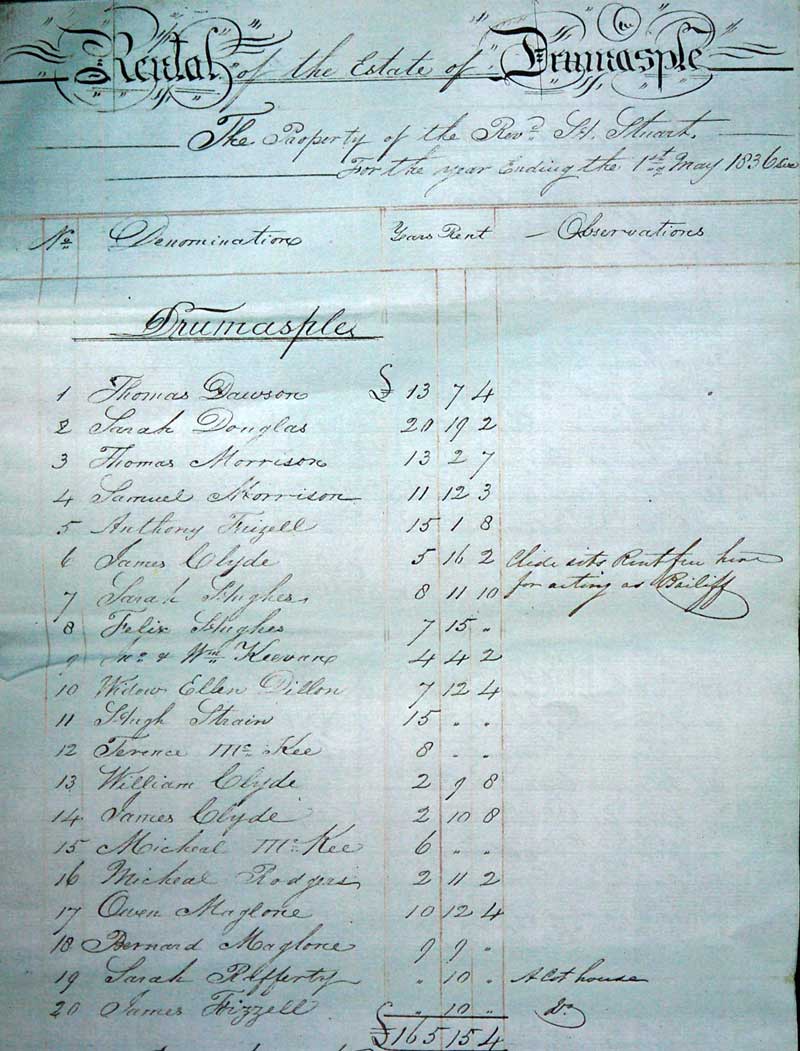 Rental of the Estate of Drumasple
The Property of the Revd. H. Stuart.
For the year Ending the 1st May 1836
No. Denomination Years Rent Observations
Drumasple
1 Thomas Dawson £ 13 7 4
2 Sarah Douglas 20 19 2
3 Thomas Morrison 13 2 7
4 Samuel Morrison 11 12 3
5 Anthony Frizell 15 1 8
6 James Clyde 5 16 2 Clide sits Rent free here
7 Sarah Hughes 8 11 10 for acting as Bailiff
8 Felix Hughes 7 15 "
9 Jno. & Wm. Keevan 4 4 2
10 Widow Ellen Dillon 7 12 4
11 Hugh Strain 15 " "
12 Terence Mc. Kee 8 " "
13 William Clyde 2 9 8
14 James Clyde 2 10 8
15 Micheal Mc. Kee 6 " "
16 Micheal Rodgers 2 11 2
17 Owen Maglone 10 12 4
18 Bernard Maglone 9 9 "
19 Sarah Rifferty " 10 " A Cot house
20 James Frizzell " 10 " Do.
£165 15 4